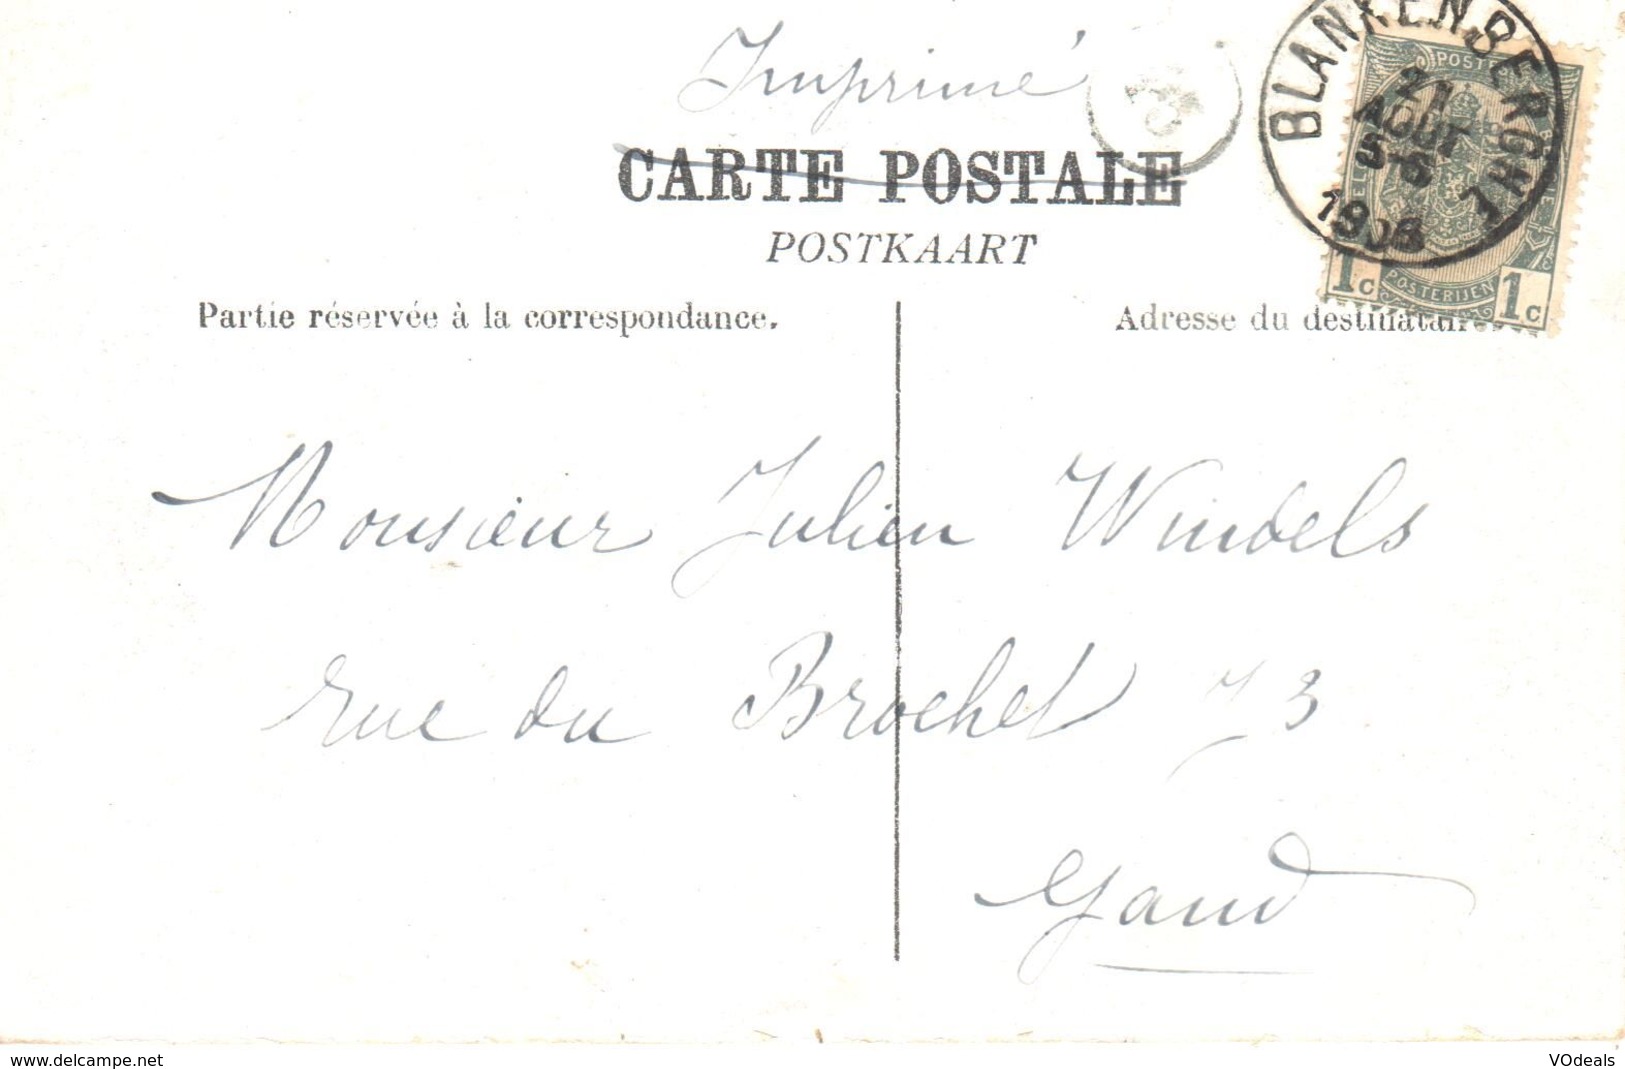 Imprimé
CARTE POSTALE
POSTKAART
BLANKENBERGHE
21
AOUT
1908
POSTES
POSTERIJEN
1c 1c
Partie réservée à la correspondance.
Adresse du destinataire
Monsieur Julien Windels
rue du Brochet 73
Gand
www.delcampe.net
VOdeals